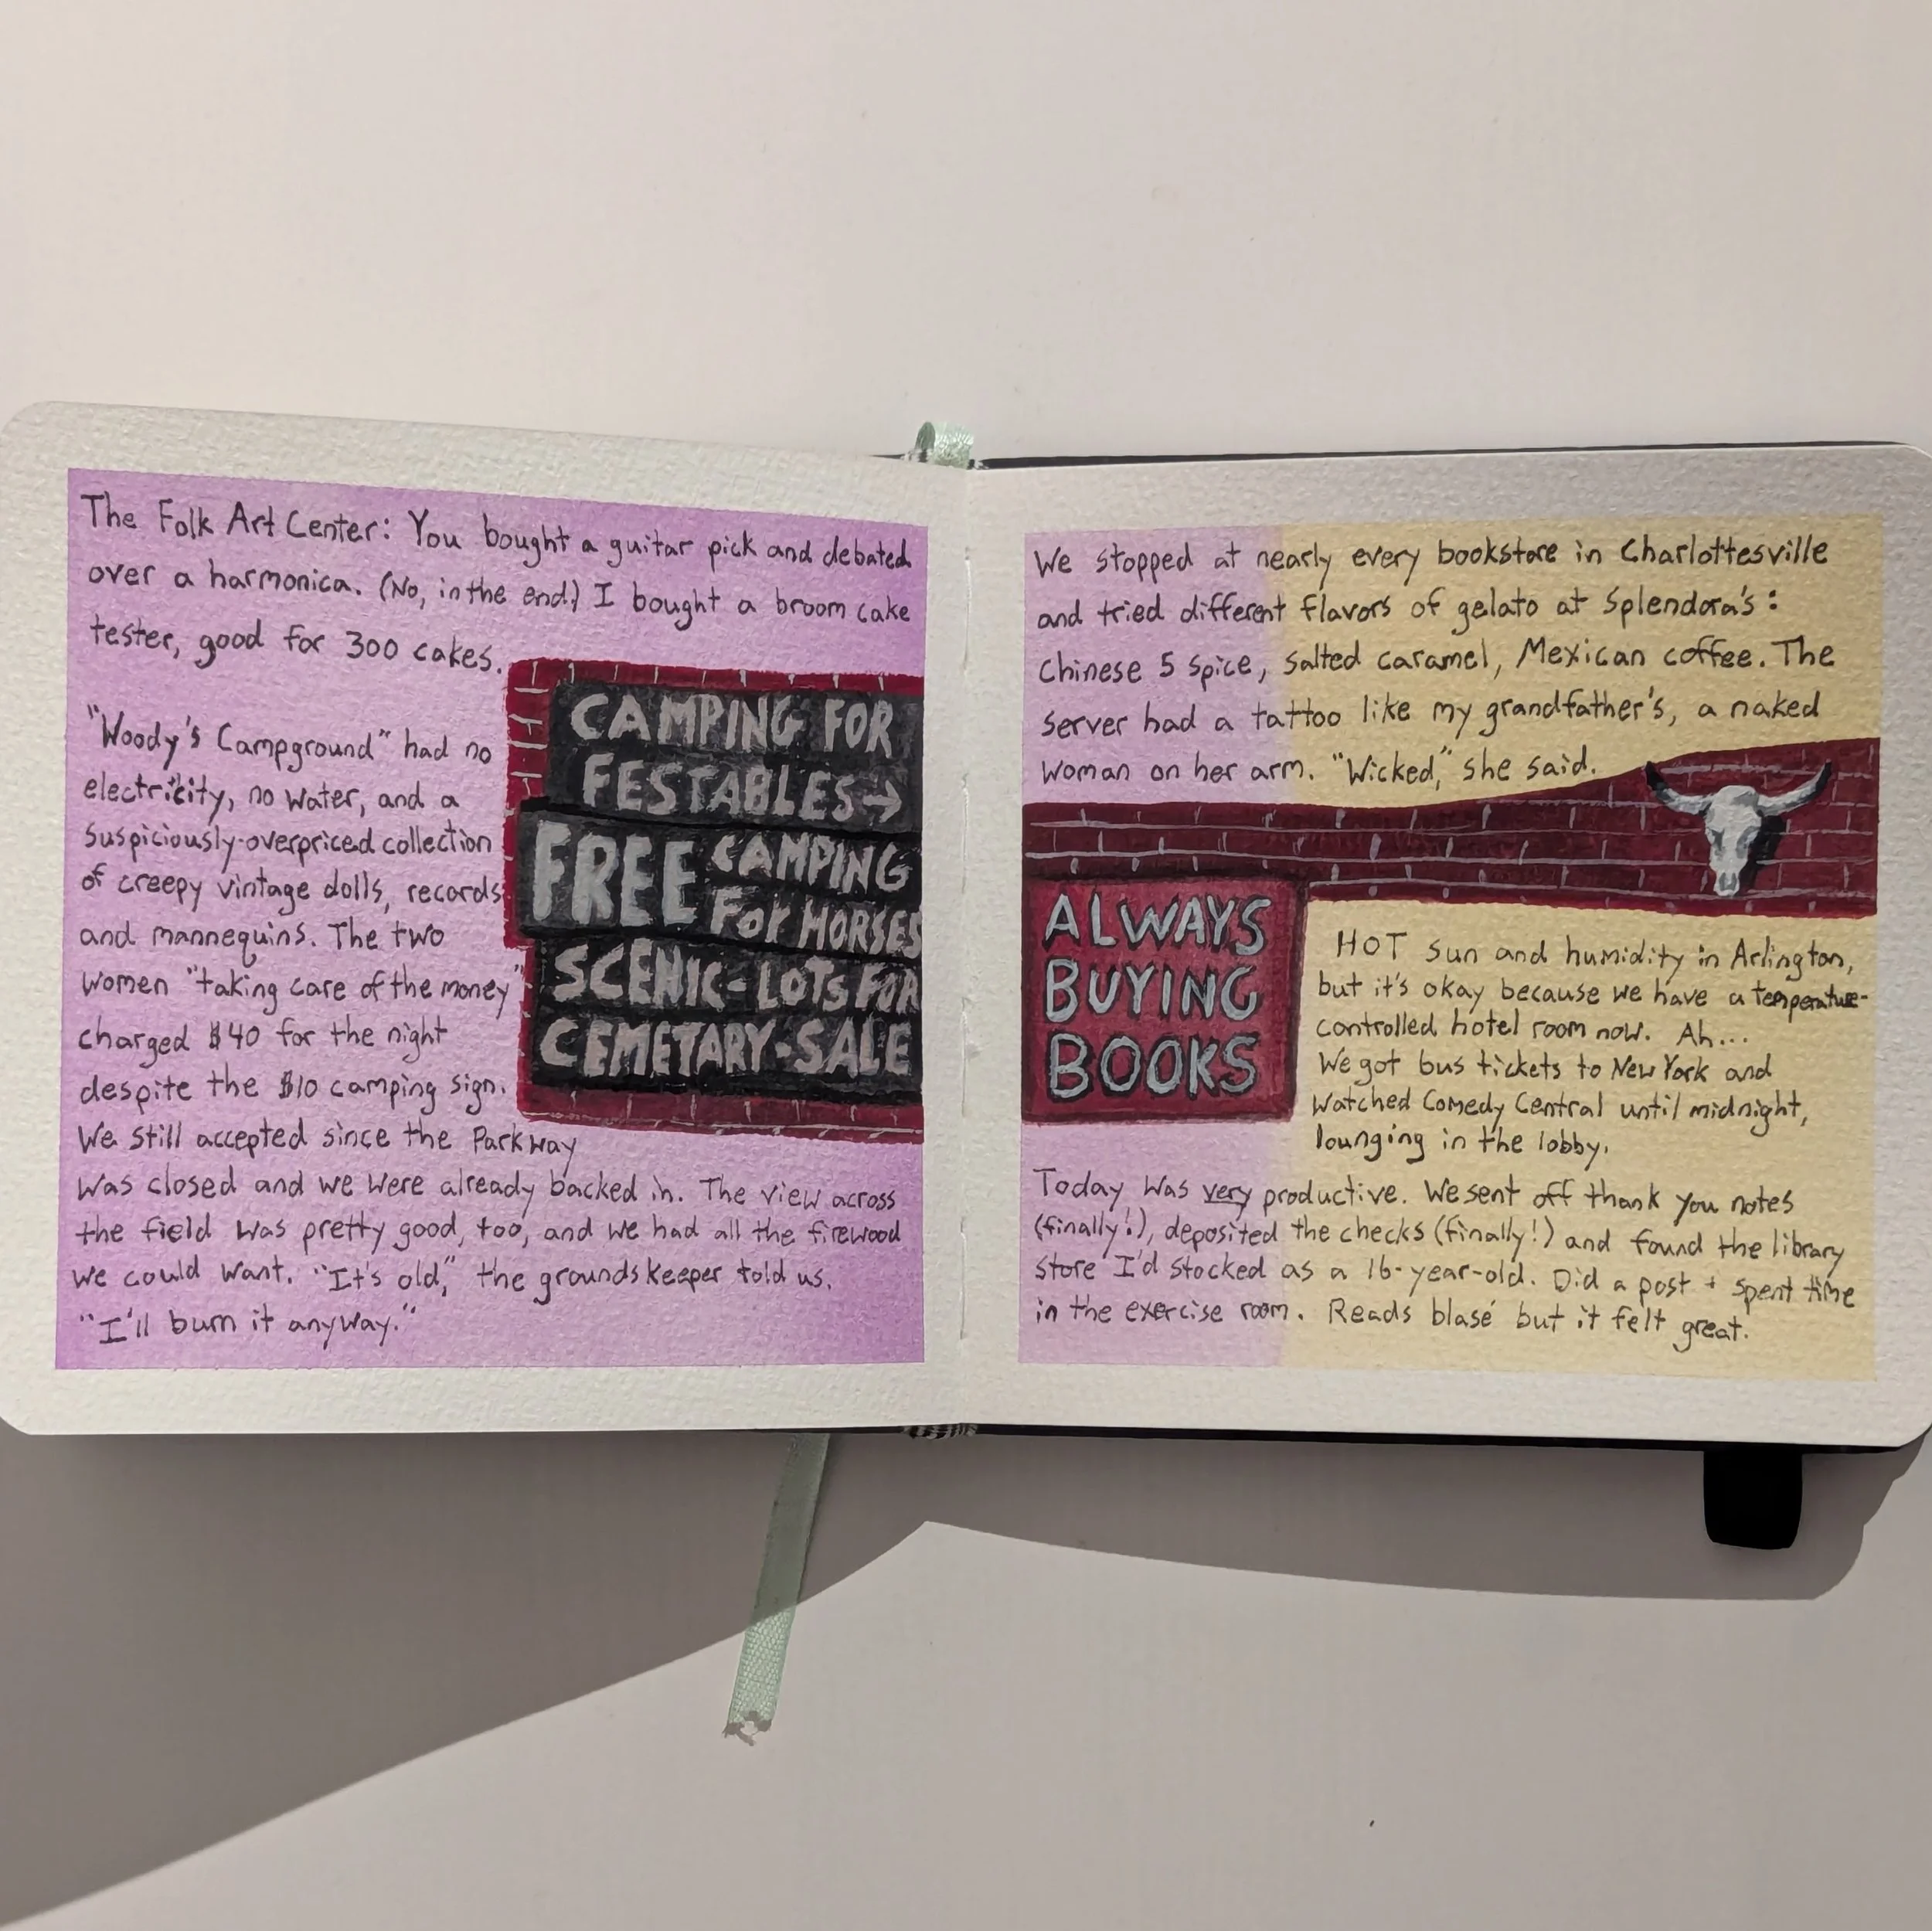 The Folk Art Center: You bought a guitar pick and debated
over a harmonica. (No, in the end.) I bought a broom cake
tester, good for 300 cakes.
"Woody's Campground" had no
electricity, no water, and a
suspiciously-overpriced collection
of creepy vintage dolls, records
and mannequins. The two
women "taking care of the money"
charged $40 for the night
despite the $10 camping sign.
We still accepted since the Parkway
was closed and we were already backed in. The view across
the field was pretty good, too, and we had all the firewood
we could want. "It's old," the groundskeeper told us.
"I'll burn it anyway."
CAMPING FOR
FESTABLES→
FREE CAMPING
FOR HORSES
SCENIC-LOTS FOR
CEMETARY-SALE
We stopped at nearly every bookstore in Charlottesville
and tried different flavors of gelato at Splendora's:
Chinese 5 spice, salted caramel, Mexican coffee. The
server had a tattoo like my grandfather's, a naked
woman on her arm. "Wicked," she said.
ALWAYS
BUYING
BOOKS
HOT sun and humidity in Arlington,
but it's okay because we have a temperature-
controlled hotel room now. Ah...
We got bus tickets to New York and
watched Comedy Central until midnight,
lounging in the lobby.
Today was very productive. We sent off thank you notes
(finally!), deposited the checks (finally!) and found the library
store I'd stocked as a 16-year-old. Did a post + spent time
in the exercise room. Reads blasé but it felt great.